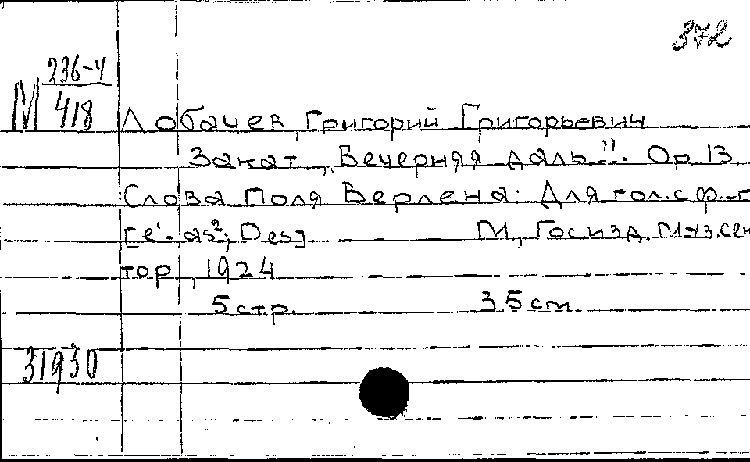 372
М 236-4
418
Лобачев, Григорий Григорьевич
Закат „Вечерняя даль". Op. 13
Слова Поля Верлена. Для гол. с ф.-п
[e'-as²; Des] М., Госизд. Муз. сек
тор, 1924
5 стр. 35 см.
31930